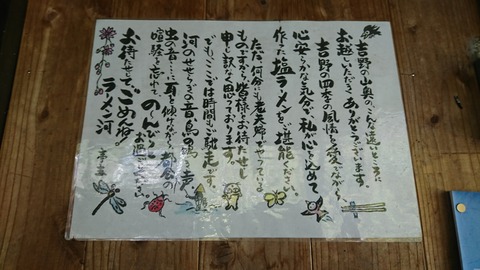 吉野の山奥のこんな遠いところに
お越しいただきありがとうございます。
吉野の四季の風情を愛でながら、
心安らかな気分で、私が心を込めて
作った塩ラーメンをご堪能ください。
ただ、何分にも老夫婦でやっている
ものですから、皆様をお待たせし
申し訳なく思っております。
でも、ここでは時間もご馳走です。
河のせせらぎの音、鳥の鳴く声、
虫の音…に耳を傾けながら、都会の
喧騒を忘れて、のんびりと
お待たせしてごめんね。
ラーメン河